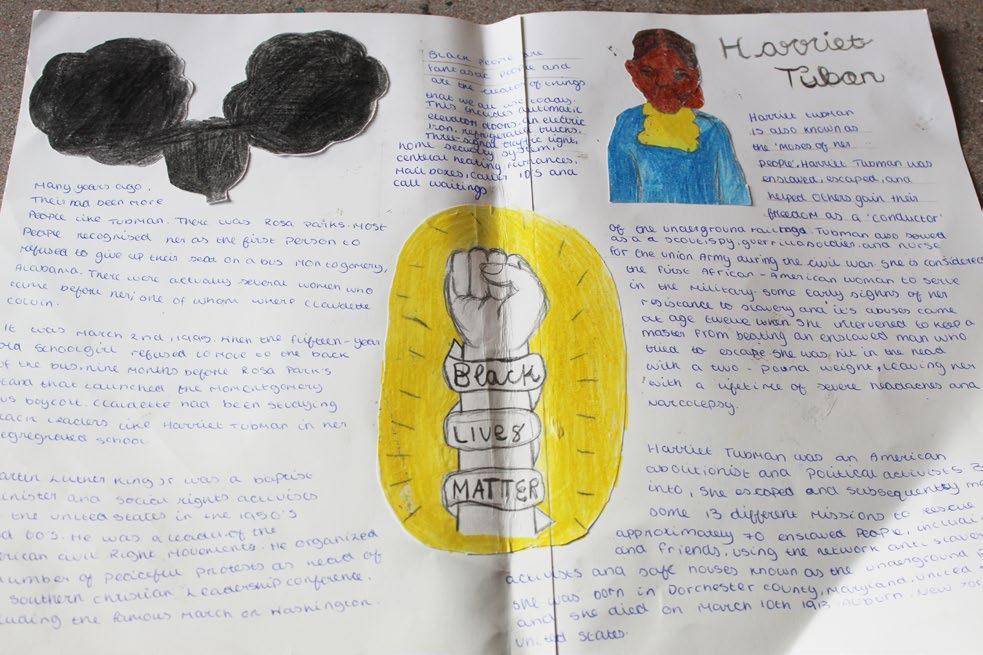 Black People are
fantastic People and
are the creator of things
that we all use today.
This includes automatic
elevator doors, an electric
iron, refrigerated trucks.
Three-signal traffic light,
home security system,
central heating furnances.
Mail boxes, caller ID's and
call waitings
Harriet
Tuban
Harriet Tubman
is also known as
the 'Moses of her
People, Harriet Tubman was
enslaved, escaped, and
helped others gain their
freedom as a 'conductor'
of the underground railroad. Tubman also served
as a a scout, spy, guerrilla soldier, and nurse
for the union Army during the civil war. She is considered
the first African-American woman to serve
in the military. Some early signs of her
resistance to slavery and it's abuses came
at age twelve when she intervened to keep a
master from beating an enslaved man who
tried to escape. She was hit in the head
with a two-pound weight, leaving her
with a lifetime of severe headaches and
narcolepsy.
Many years ago,
Their had been more
People like Tubman. There was Rosa Parks. Most
People recognised her as the first Person to
refused to give up their seat on a bus Montgomery,
Alabama. There were actually several women who
came before her; one of whom where Claudette
colvin.
It was March 2nd, when the fifteen-year
old schoolgirl refused to move to the back
of the bus, nine months before Rosa Park's
stand that launched the Montgomery
bus boycott. Claudette had been studying
Black leaders like Harriet Tubman in her
segregated school.
Black
Lives
MATTER
Martin Luther King Jr was a baptist
minister and social rights activists
in the united states in the 1950's
and 60's. He was a leader of the
American civil Right Movements. He organized
number of Peaceful Protests as head of
Southern Christian Leadership conference,
including the famous March on Washington.
Harriet Tubman was an American
abolitionist and Political activists. B
into, she escaped and subsequently ma
some 13 different missions to rescue
approximately 70 enslaved People, includi
and friends, using the network anti slaver
activists and safe houses known as the underground
She was born in Dorchester county, Maryland, united
and she died on March 10th 1913 Auburn, New
united states.